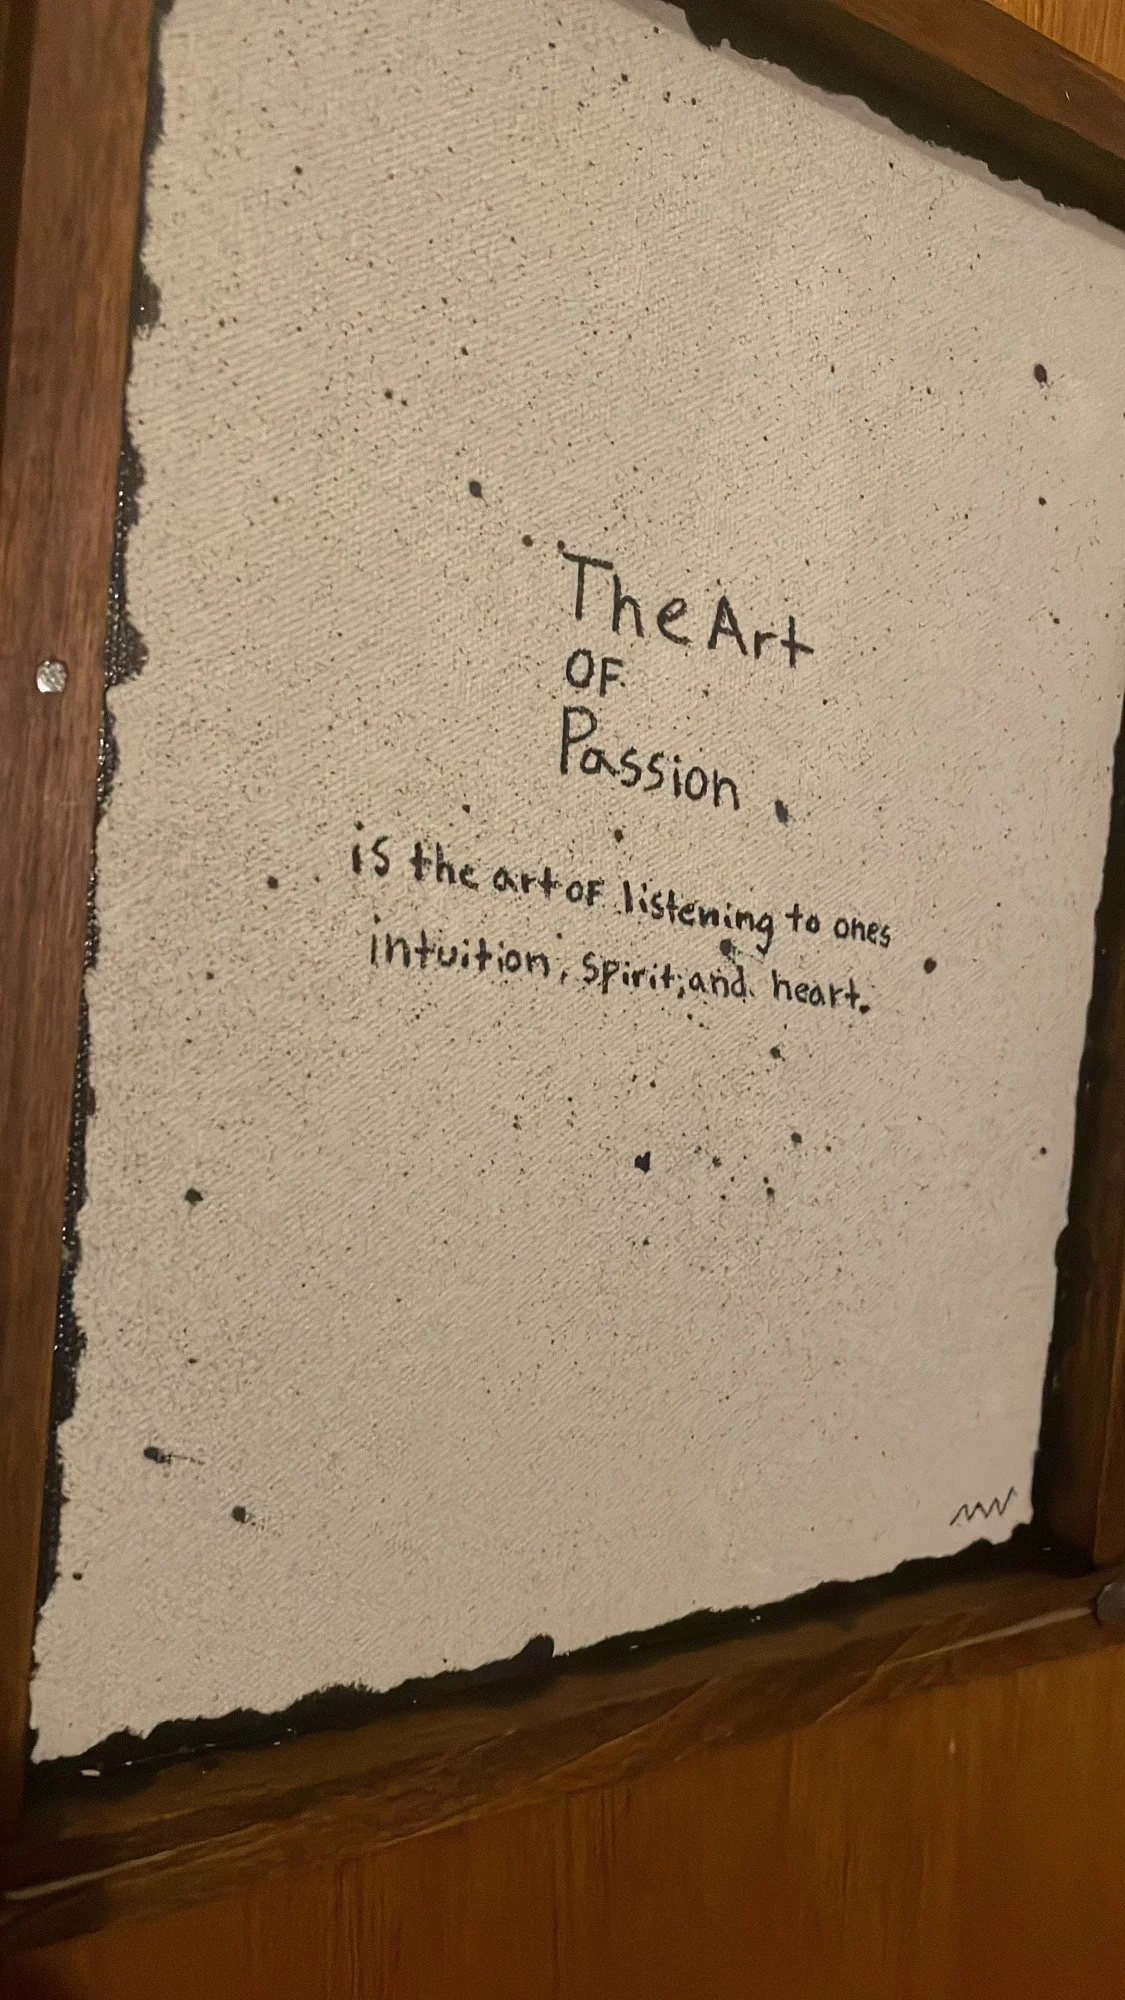 The Art
OF
Passion
is the art of listening to ones
intuition, spirit, and heart.